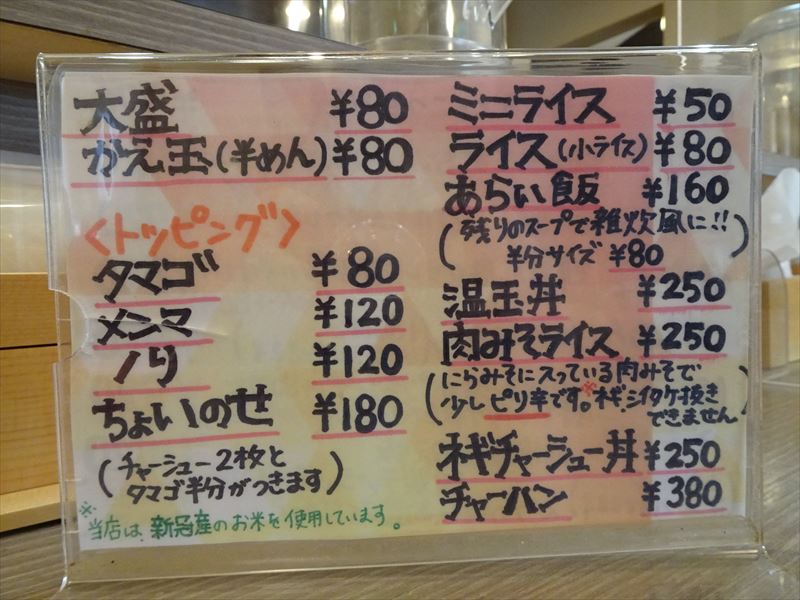 大盛 ¥80
かえ玉(半めん) ¥80
〈トッピング〉
タマゴ ¥80
メンマ ¥120
ノリ ¥120
ちょいのせ ¥180
(チャーシュー2枚と
タマゴ半分がつきます)
※当店は、新冠産のお米を使用しています。
ミニライス ¥50
ライス(小ライス) ¥80
あらい飯 ¥160
(残りのスープで雑炊風に!!
半分サイズ ¥80)
温玉丼 ¥250
肉みそライス ¥250
(にらみそに入っている肉みそで
少しピリ辛です。※ネギ、シイタケ抜き
できません)
ネギチャーシュー丼 ¥250
チャーハン ¥380